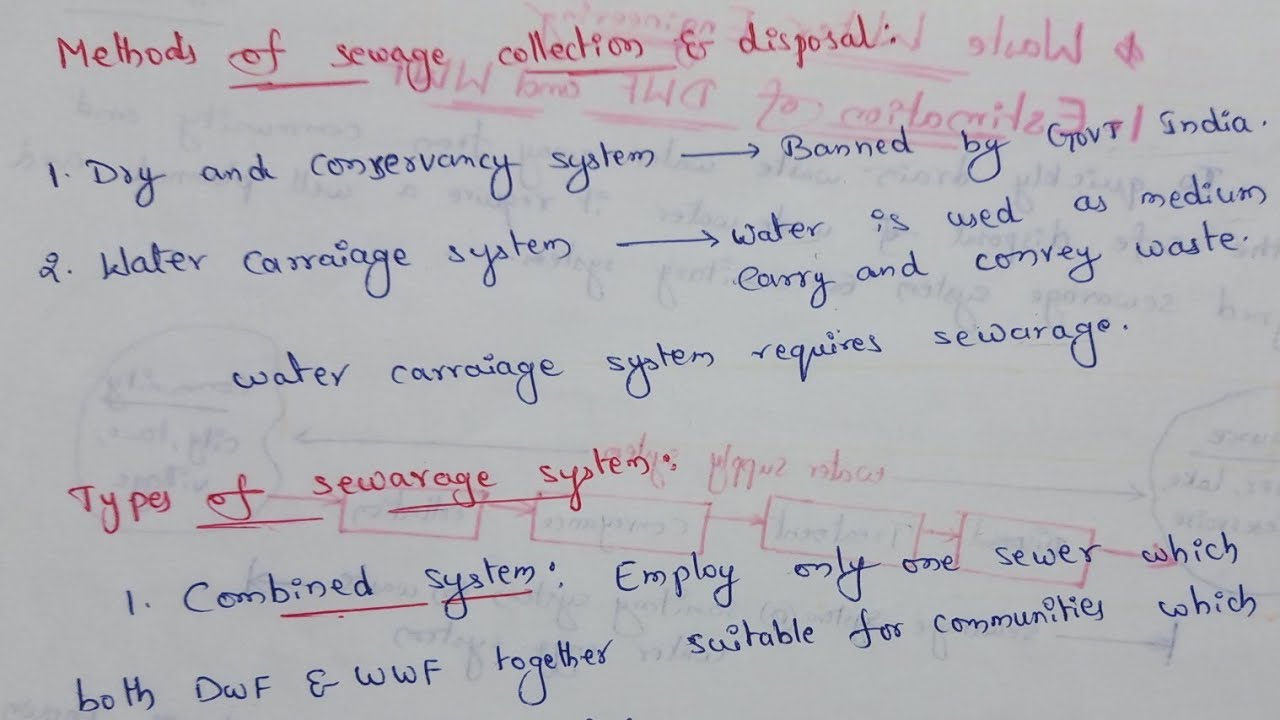 Methods of sewage collection & disposal:
1. Dry and conservancy system → Banned by GOVT India.
2. Water carraiage system → water is used as medium
carry and convey waste.
water carraiage system requires sewarage.
Types of sewarage system:
1. Combined system: Employ only one sewer which
both DWF & WWF together suitable for communities which